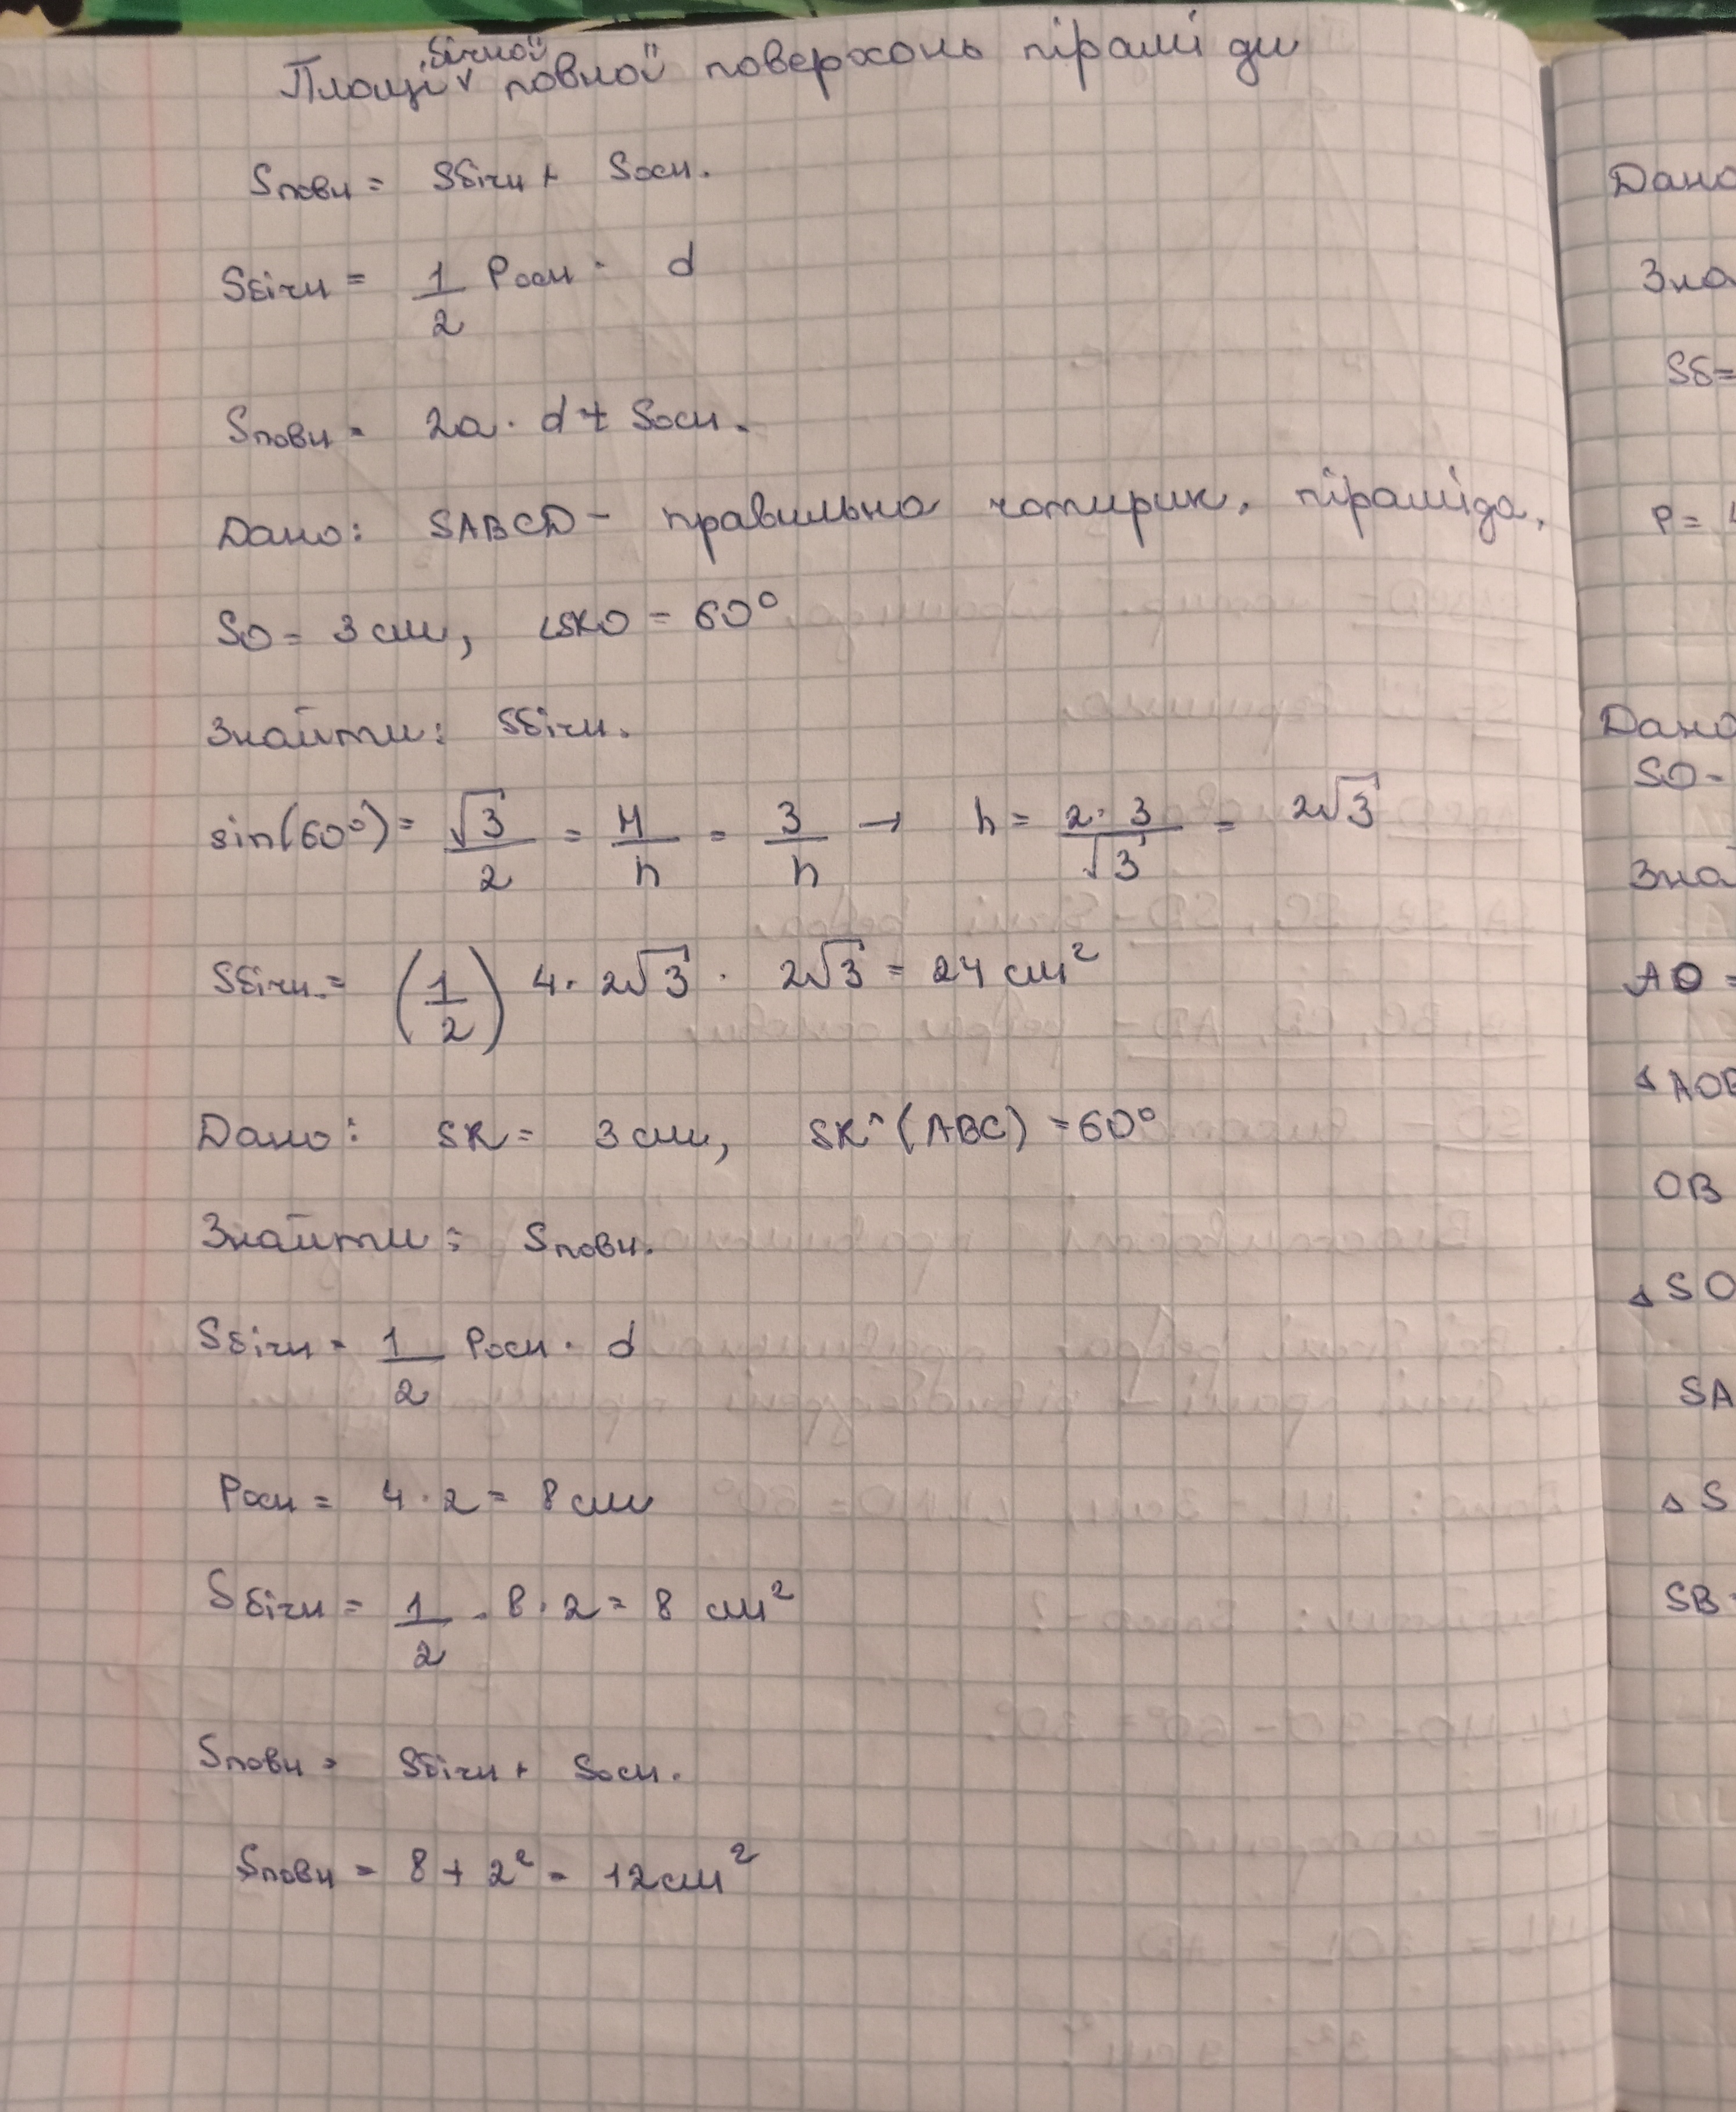 бічної
Площі v повної поверхонь піраміди
Sповн = Sбічн + Sосн.
Sбічн = 1/2 Pосн · d
Sповн = 2a · d + Sосн.
Дано: SABCD – правильна чотирик. піраміда,
SO = 3 см, ∠SKO = 60°
Знайти: Sбічн.
sin(60°) = √3/2 = H/h = 3/h → h = 2·3/√3 = 2√3
Sбічн. = (1/2) 4 · 2√3 · 2√3 = 24 см²
Дано: SK = 3 см, SK^(ABC) = 60°
Знайти: Sповн.
Sбічн = 1/2 Pосн · d
Pосн = 4 · 2 = 8 см
Sбічн = 1/2 · 8 · 2 = 8 см²
Sповн = Sбічн + Sосн.
Sповн = 8 + 2² = 12 см²
Дано
Зна
Sб=
P=
Дано
SO-
Зна
AO =
∆AOB
OB
∆SO
SA
∆S
SB